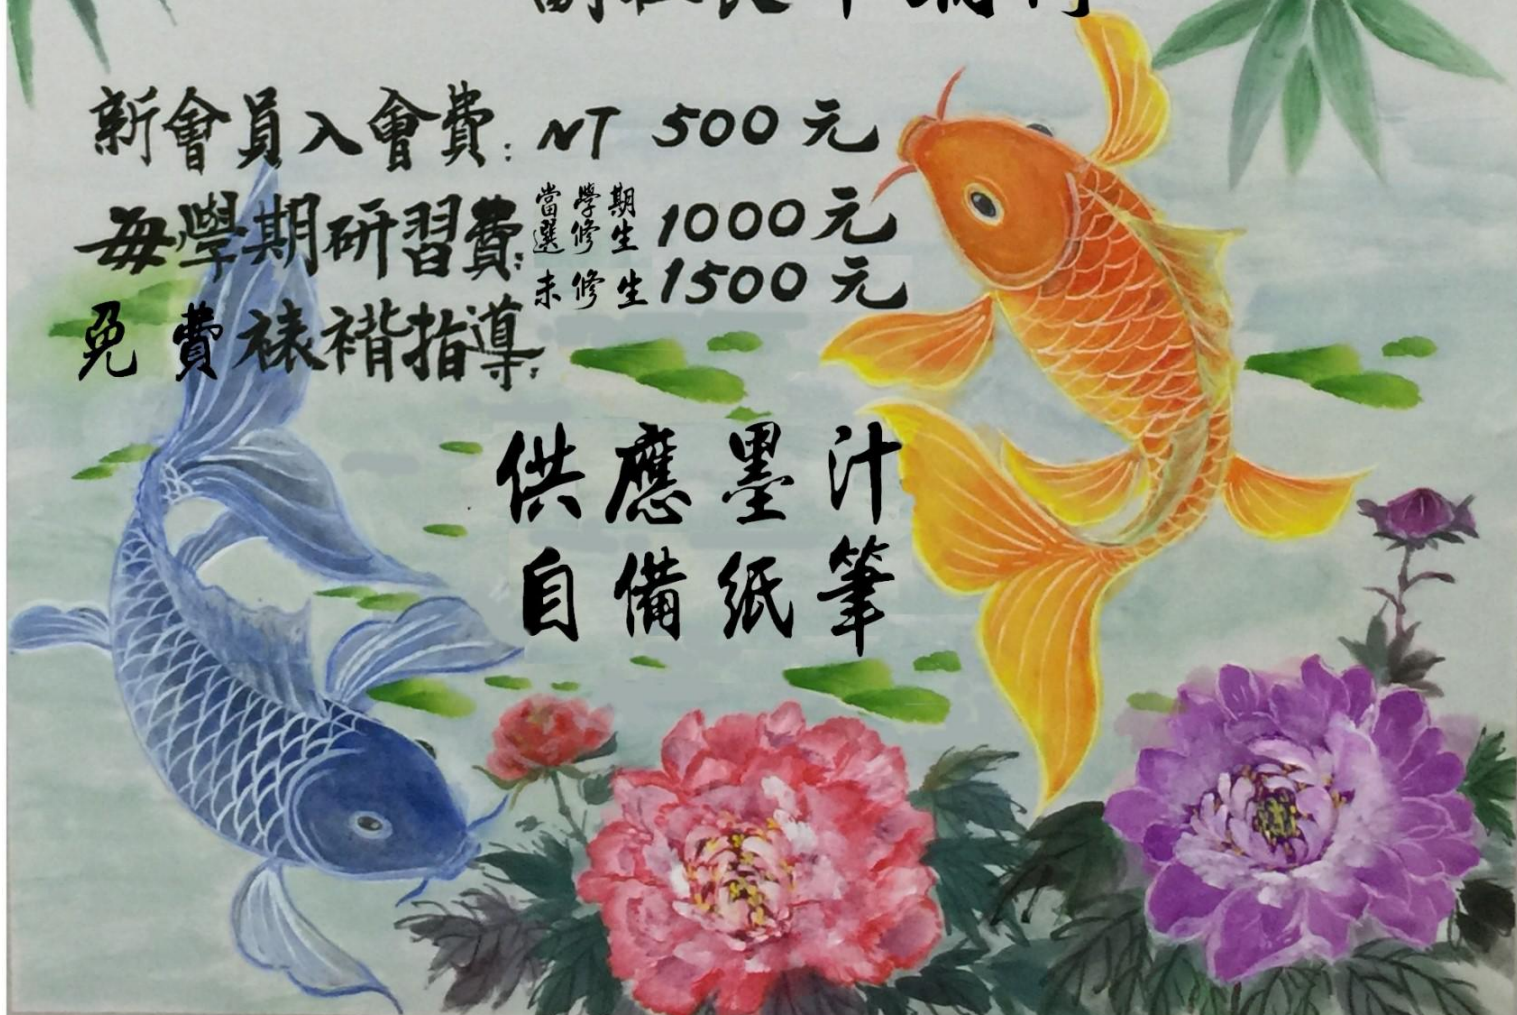 新會員入會費: NT 500 元
每學期研習費: 當學期選修生 1000 元
未修生 1500 元
免費裱褙指導:
供應墨汁
自備紙筆